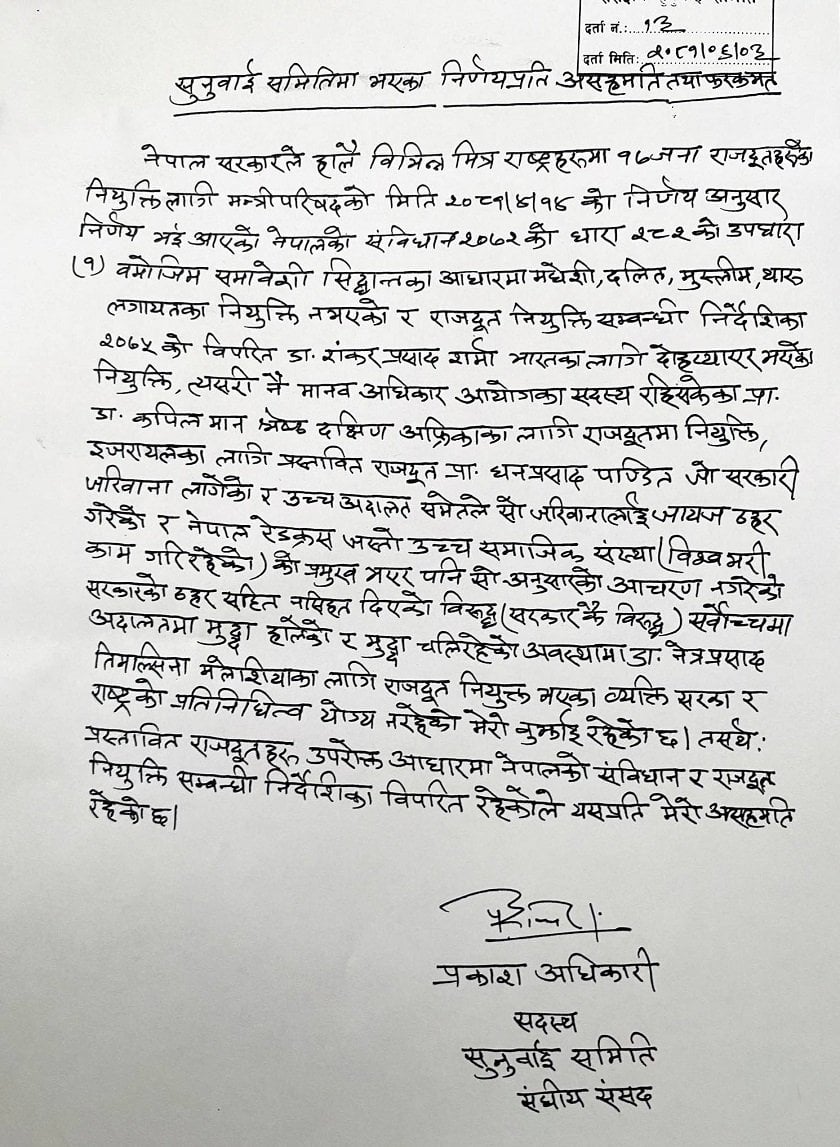 दर्ता नं.: १३
दर्ता मिति: २०८१।०६।०३
सुनुवाई समितिमा भएका निर्णयप्रति असहमति तथा फरकमत
नेपाल सरकारले हालै विभिन्न मित्र राष्ट्रहरूमा १७ जना राजदूतहरूको
नियुक्ति लागि मन्त्रीपरिषदको मिति २०८१।४।१४ को निर्णय अनुसार
निर्णय भई आएको नेपालको संविधान २०७२ को धारा २८२ को उपधारा
(१) वमोजिम समावेशी सिद्धान्तका आधारमा मधेशी, दलित, मुस्लीम, थारु
लगायतका नियुक्ति नभएको र राजदूत नियुक्ति सम्बन्धी निर्देशिका
२०७५ को विपरित डा. शंकर प्रसाद शर्मा भारतका लागि दोहर्‍याएर भएको
नियुक्ति, त्यसरी नै मानव अधिकार आयोगका सदस्य रहिसकेका प्रा.
डा. कपिल मान श्रेष्ठ दक्षिण अफ्रिकाका लागि राजदूतमा नियुक्ति,
इजरायलका लागि प्रस्तावित राजदूत प्रा. धनप्रसाद पण्डित जो सरकारी
जरिवाना लागेको र उच्च अदालत समेतले सो जरिवानालाई जायज ठहर
गरेको र नेपाल रेडक्रस जस्तो उच्च समाजिक संस्था (विश्व भरी
काम गरिरहेको) को प्रमुख भएर पनि सो अनुसारको आचरण नगरेको
सरकारको ठहर सहित नसिहत दिएको विरुद्ध (सरकारकै विरुद्ध) सर्वोच्चमा
अदालतमा मुद्धा हालेको र मुद्धा चलिरहेको अवस्थामा डा. नेत्रप्रसाद
तिमल्सिना मलेशियाका लागि राजदूत नियुक्त भएका व्यक्ति सरका र
राष्ट्रको प्रतिनिधित्व योग्य नरहेको मेरो बुझाई रहेको छ। तसर्थ:
प्रस्तावित राजदूतहरु उपरोक्त आधारमा नेपालको संविधान र राजदूत
नियुक्ति सम्बन्धी निर्देशिका विपरित रहेकोले यसप्रति मेरो असहमति
रहेको छ।
प्रकाश अधिकारी
सदस्य
सुनुवाई समिति
संघीय संसद